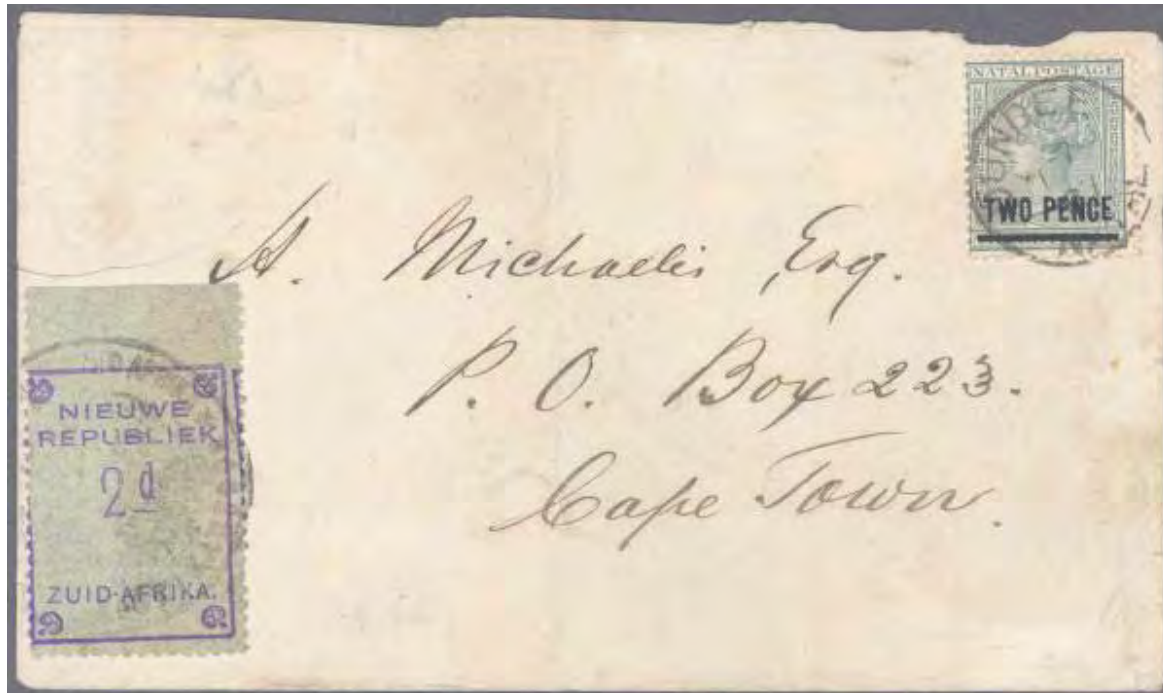 NATAL POSTAGE
DUNDEE
TWO PENCE
NATAL
A. Michaelis Esq.
P. O. Box 223.
Cape Town.
NIEUWE
REPUBLIEK
2d
ZUID-AFRIKA.